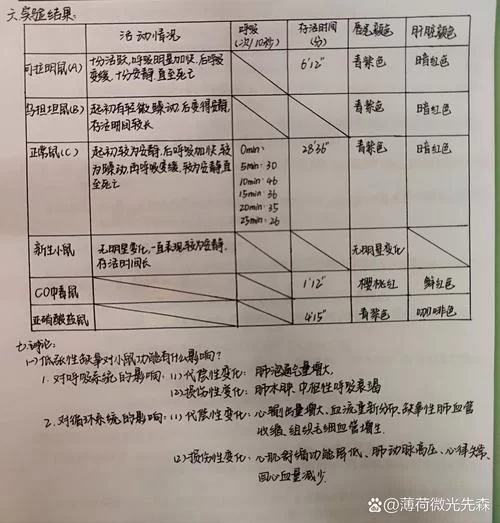 六.实验结果:
活动情况 呼吸(次/10秒) 存活时间(分) 唇尾颜色 肝脏颜色
可拉明鼠(A) 十分活跃,呼吸明显加快,后呼吸变缓,十分安静,直至死亡 6'12" 青紫色 暗红色
乌拉坦鼠(B) 起初有轻微躁动,后变得安静,存活时间较长 青紫色 暗红色
正常鼠(C) 起初较为安静,后呼吸加快,较为躁动,而呼吸变缓,较为安静,直至死亡 28'36" 青紫色 暗红色
0min:
5min: 30
10min: 46
15min: 36
20min: 35
25min: 26
新生小鼠 无明显变化,一直表现较为安静,存活时间长 无明显变化
CO中毒鼠 1'12" 樱桃红 鲜红色
亚硝酸盐鼠 4'15" 青紫色 咖啡色
七.讨论:
(一)低张性缺氧对小鼠功能有什么影响?
1.对呼吸系统的影响:(1)代偿性变化:肺泡通气量增大.
(2)损伤性变化:肺水肿、中枢性呼吸衰竭
2.对循环系统的影响:(1)代偿性变化:心输出量增大、血流重新分布、缺氧性肺血管
收缩、组织毛细血管增生.
(2)损伤性变化:心肌舒缩功能降低、肺动脉高压、心律失常、
回心血量减少.
Baidu百科 @薄荷微光先森